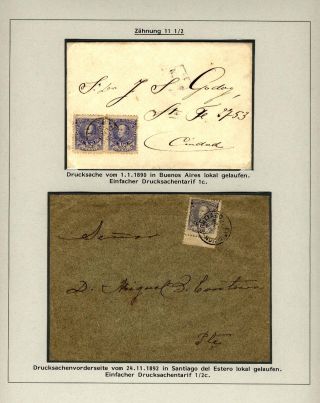 Zähnung 11 1/2
Sr. J. S. Godoy
Sta. Fe 2753
Ciudad
Drucksache vom 1.1.1890 in Buenos Aires lokal gelaufen.
Einfacher Drucksachentarif 1c.
Señor
D. Miguel B.
Pte
Drucksachenvorderseite vom 24.11.1892 in Santiago del Estero lokal gelaufen.
Einfacher Drucksachentarif 1/2c.